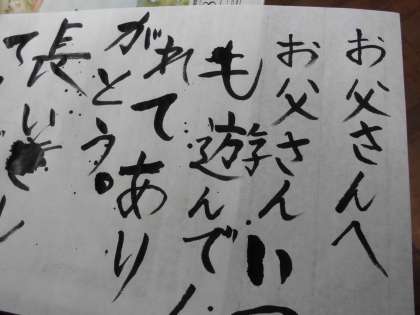 お父さんへ
お父さんい
も遊んで
れてあり
がとう。
長い
て